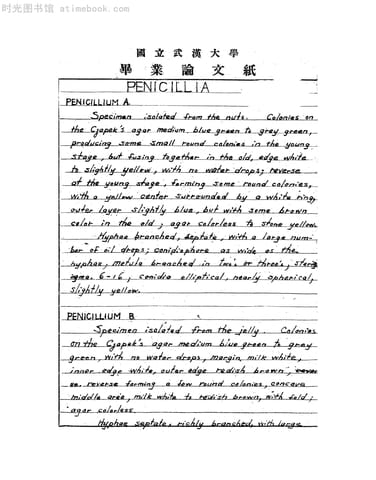 时光图书馆 atimebook.com
國立武漢大學
畢業論文紙
PENICILLIA
PENICILLIUM A
Specimen isolated from the nuts. Colonies on
the Czapek's agar medium blue green to gray green,
producing some small round colonies in the young
stage, but fusing together in the old, edge white
to slightly yellow, with no water drops; reverse
at the young stage, forming some round colonies,
with a yellow center surrounded by a white ring,
outer layer slightly blue, but with some brown
color in the old; agar colorless to stone yellow.
Hyphae branched, septate, with a large num-
ber of oil drops; conidiophore as wide as the
hyphae, metula branched in two's or three's;
6-16; conidia elliptical, nearly spherical,
slightly yellow.
PENICILLIUM B
Specimen isolated from the jelly. Colonies
on the Czapek's agar medium blue green to gray
green, with no water drops, margin, milk white,
inner edge white, outer edge redish brown,
reverse forming a few round colonies, concave
middle area, milk white to redish brown, with fold;
agar colorless.
Hyphae septate, richly branched, with large